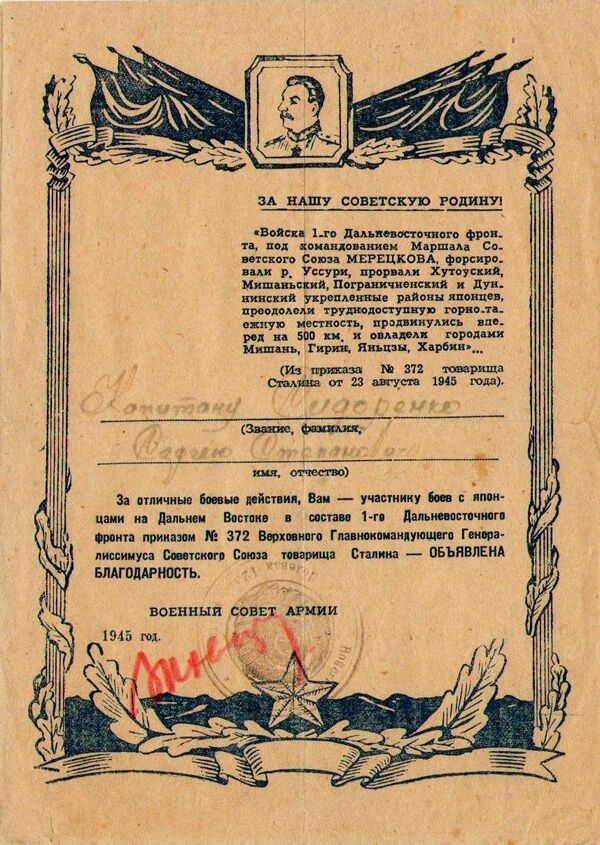 ЗА НАШУ СОВЕТСКУЮ РОДИНУ!
«Войска 1-го Дальневосточного фрон-
та, под командованием Маршала Со-
ветского Союза МЕРЕЦКОВА, форсиро-
вали р. Уссури, прорвали Хутоуский,
Мишаньский, Пограничненский и Дун-
нинский укрепленные районы японцев,
преодолели труднодоступную горно-та-
ежную местность, продвинулись впе-
ред на 500 км. и овладели городами
Мишань, Гирин, Яньцзы, Харбин»...
(Из приказа № 372 товарища
Сталина от 23 августа 1945 года).
Капитану Сидоренко
(Звание, фамилия,
Сергею Степанови
имя, отчество)
За отличные боевые действия, Вам — участнику боев с япон-
цами на Дальнем Востоке в составе 1-го Дальневосточного
фронта приказом № 372 Верховного Главнокомандующего Генера-
лиссимуса Советского Союза товарища Сталина — ОБЪЯВЛЕНА
БЛАГОДАРНОСТЬ.
ВОЕННЫЙ СОВЕТ АРМИИ
1945 год.